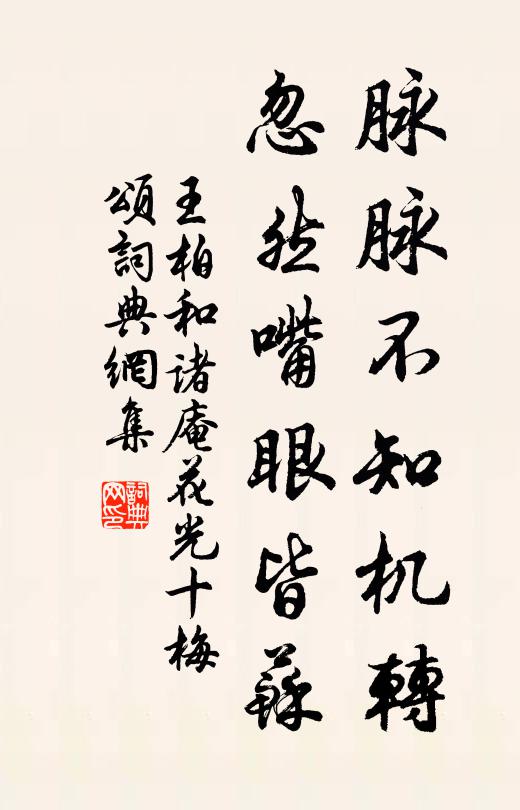 脉脉不知机轉
忽然嘴眼皆蘇
王柏和诸庵花光十梅
頌詞典網集
詞典网印